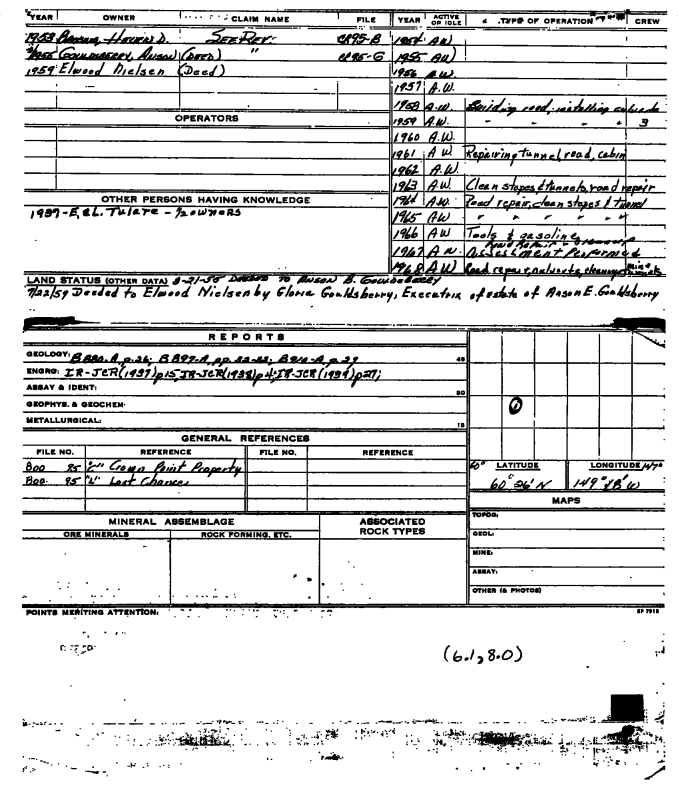 YEAR OWNER CLAIM NAME FILE YEAR ACTIVE OR IDLE TYPE OF OPERATION CREW
1953 Haven D. SEE REV. CR95-B 1954 AW
GOULDSBERRY, ANSON (DEED) " CR95-G 1955 AW
1959 Elwood Nielsen (Deed) 1956 A.W.
1957 A.W.
1958 A.W. Building road, installing
OPERATORS 1959 A.W. " " " 3
1960 A.W.
1961 AW Repairing tunnel, road, cabin
1962 A.W.
1963 A.W. Clean stopes & tunnels, road repair
OTHER PERSONS HAVING KNOWLEDGE 1964 A.W. Road repair, clean stopes & tunnel
1937-E. & L. Tulare - 1/2 owners 1965 AW " " " "
1966 AW Tools & gasoline
Road Repair -
1967 A.W. Assessment Performed
1968 AW Road repair, culverts,
LAND STATUS (OTHER DATA) DEEDED TO ANSON B. GOULDSBERRY
7/22/59 Deeded to Elwood Nielsen by Gloria Gouldsberry, Executrix of estate of Anson E. Gouldsberry
REPORTS
GEOLOGY: p.26; p.27 45
ENGRG: IR-JCR(1937)p15, IR-JCR(1938)p4; IR-JCR(1939)p27;
ASSAY & IDENT: 30
GEOPHYS. & GEOCHEM.
METALLURGICAL: 15
GENERAL REFERENCES
FILE NO. REFERENCE FILE NO. REFERENCE
Boo 95 "C" Crown Point Property
Boo 95 "L" Last Chance
60° LATITUDE LONGITUDE 149°
60° 26' N 149° 18' W
MAPS
MINERAL ASSEMBLAGE ASSOCIATED ROCK TYPES
ORE MINERALS ROCK FORMING, ETC.
TOPOG:
GEOL:
MINE:
ASSAY:
OTHER (& PHOTOS)
POINTS MERITING ATTENTION:
(6.1, 8.0)